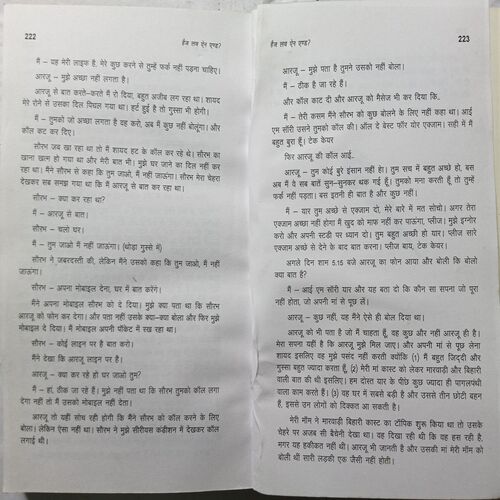 222
हैज लव ऐन एण्ड?
मैं – यह मेरी लाइफ है, मेरे कुछ करने से तुम्हें फर्क नहीं पड़ना चाहिए।
आरजू – मुझे अच्छा नहीं लगता है।
आरजू से बात करते–करते मैं रो दिया, बहुत अजीब लग रहा था। शायद
मेरे रोने से उसका दिल पिघल गया था। हर्ट हुई है तो गुस्सा भी होगी।
मैं – तुमको जो अच्छा लगता है वह करो, अब मैं कुछ नहीं बोलूंगा। और
कॉल कट कर दिए।
सौरभ जब खा रहा था तो मैं शायद हट के कॉल कर रहे थे। सौरभ का
खाना खत्म हो गया था और मेरी बात भी। मुझे घर जाने का दिल नहीं कर
रहा था। मैंने सौरभ से कहा कि तुम जाओ, मैं नहीं जाऊंगा। सौरभ मेरा चेहरा
देखकर सब समझ गया था कि मैं आरजू से बात कर रहा था।
सौरभ – क्या कर रहा था?
मैं – आरजू से बात।
सौरभ – चलो घर।
मैं – तुम जाओ मैं नहीं जाऊंगा। (थोड़ा गुस्से में)
सौरभ ने जबरदस्ती की, लेकिन मैंने उसको कहा कि तुम जाओ, मैं नहीं
जाऊंगा।
सौरभ – अपना मोबाइल देना, घर में बात करेंगे।
मैंने अपना मोबाइल सौरभ को दे दिया। मुझे क्या पता था कि सौरभ
आरजू को फोन कर देगा। और पता नहीं उसके क्या–क्या बोला और फिर मुझे
मोबाइल दे दिया। मैं मोबाइल अपनी पॉकेट में रख रहा था।
सौरभ – कोई लाइन पर है बात करो।
मैंने देखा कि आरजू लाइन पर है।
आरजू – क्या कर रहे हो घर जाओ तुम?
मैं – हां, ठीक जा रहे हैं। मुझे नहीं पता था कि सौरभ तुमको कॉल लगा
देगा नहीं तो मैं उसको मोबाइल नहीं देता।
आरजू तो यही सोच रही होगी कि मैंने सौरभ को कॉल करने के लिए
बोला। लेकिन ऐसा नहीं था। सौरभ ने मुझे सीरीयस कंडीशन में देखकर कॉल
लगाई थी।
हैज लव ऐन एण्ड?
223
आरजू – मुझे पता है तुमने उसको नहीं बोला।
मैं – ठीक है जा रहे हैं।
और कॉल काट दी और आरजू को मैसेज भी कर दिया कि..
मैं – तेरी कसम मैंने सौरभ को कुछ बोलने के लिए नहीं कहा था। आई
एम सॉरी उसने तुमको कॉल की। ऑल दे बेस्ट फॉर योर एक्जाम। सही में मैं
बहुत बुरा हूँ। टेक केयर
फिर आरजू की कॉल आई..
आरजू – तुम कोई बुरे इंसान नहीं हो। तुम सच में बहुत अच्छे हो, बस
अब मैं ये सब बातें सुन–सुनकर थक गई हूँ। तुमको मना करती हूँ तो तुम्हें
फर्क नहीं पड़ता। बस इतनी ही बात है और कुछ नहीं।
मैं – यार तुम अच्छे से एक्जाम दो, मेरे बारे में मत सोचो। अगर तेरा
एक्जाम अच्छा नहीं होगा मैं खुद को माफ नहीं कर पाऊंगा, प्लीज। मुझे इग्नोर
करो और अपनी स्टडी पर ध्यान दो। तुम बहुत अच्छी हो यार। प्लीज सारे
एक्जाम अच्छे से देने के बाद बात करना। प्लीज बाय, टेक केयर।
अगले दिन शाम 5.15 बजे आरजू का फोन आया और बोली कि बोलो
क्या बात है?
मैं – आई एम सॉरी यार और यह बता दो कि कौन सा सपना जो पूरा
नहीं होता, जो अपनी मां से पूछ लें।
आरजू – कुछ नहीं, यह मैंने ऐसे ही बोल दिया था।
आरजू को भी पता है जो मैं चाहता हूँ, वह कुछ और नहीं आरजू ही है।
मेरा सपना यही है कि आरजू मुझे मिल जाए। और अपनी मां से पूछ लेना
शायद इसलिए वह मुझे पसंद नहीं करती क्योंकि (1) मैं बहुत जिद्दी और
गुस्सा बहुत ज्यादा करता हूँ, (2) मेरी मां कास्ट को लेकर मारवाड़ी और बिहारी
वाली बात की थी इसलिए। हम दोस्त यार के पीछे कुछ ज्यादा ही पागलपंथी
वाला काम करते हैं। (3) वह घर में सबसे बड़ी है और उससे तीन छोटी बहन
हैं, इससे उन लोगों को दिक्कत आ सकती है।
मेरी मॉम ने मारवाड़ी बिहारी कास्ट का टॉपिक शुरू किया था तो उसके
चेहरे पर अजब सी बेचेनी देखा था। वह दिखा रही थी कि वह हस रही है,
मगर यह हकीकत नहीं थी। आरजू भी जानती है और उसकी मां मेरी मॉम को
बोली थीं सारी लड़की एक जैसी नहीं होती।